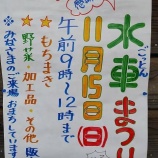 水車まつり
ごっとん
11月15日(日)
午前9時〜12時まで
もちまき
野菜・加工品・その他販
みなさまのご来場
おまちしています